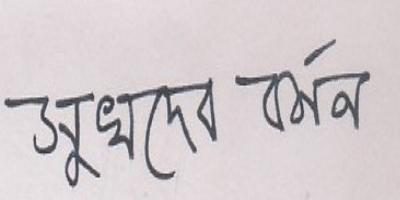 সুখদেব বর্মন